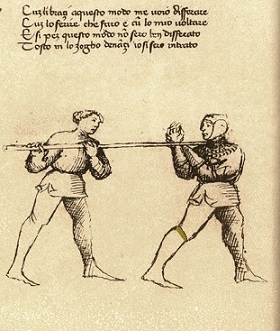 Cuz libraz aquesto modo me voio disferare
Cuz lo ferire che fazo e cū lo mio voltare
E si per questo modo nō sero ben disferato
Tosto in lo zogho denāzi io si sero intrato